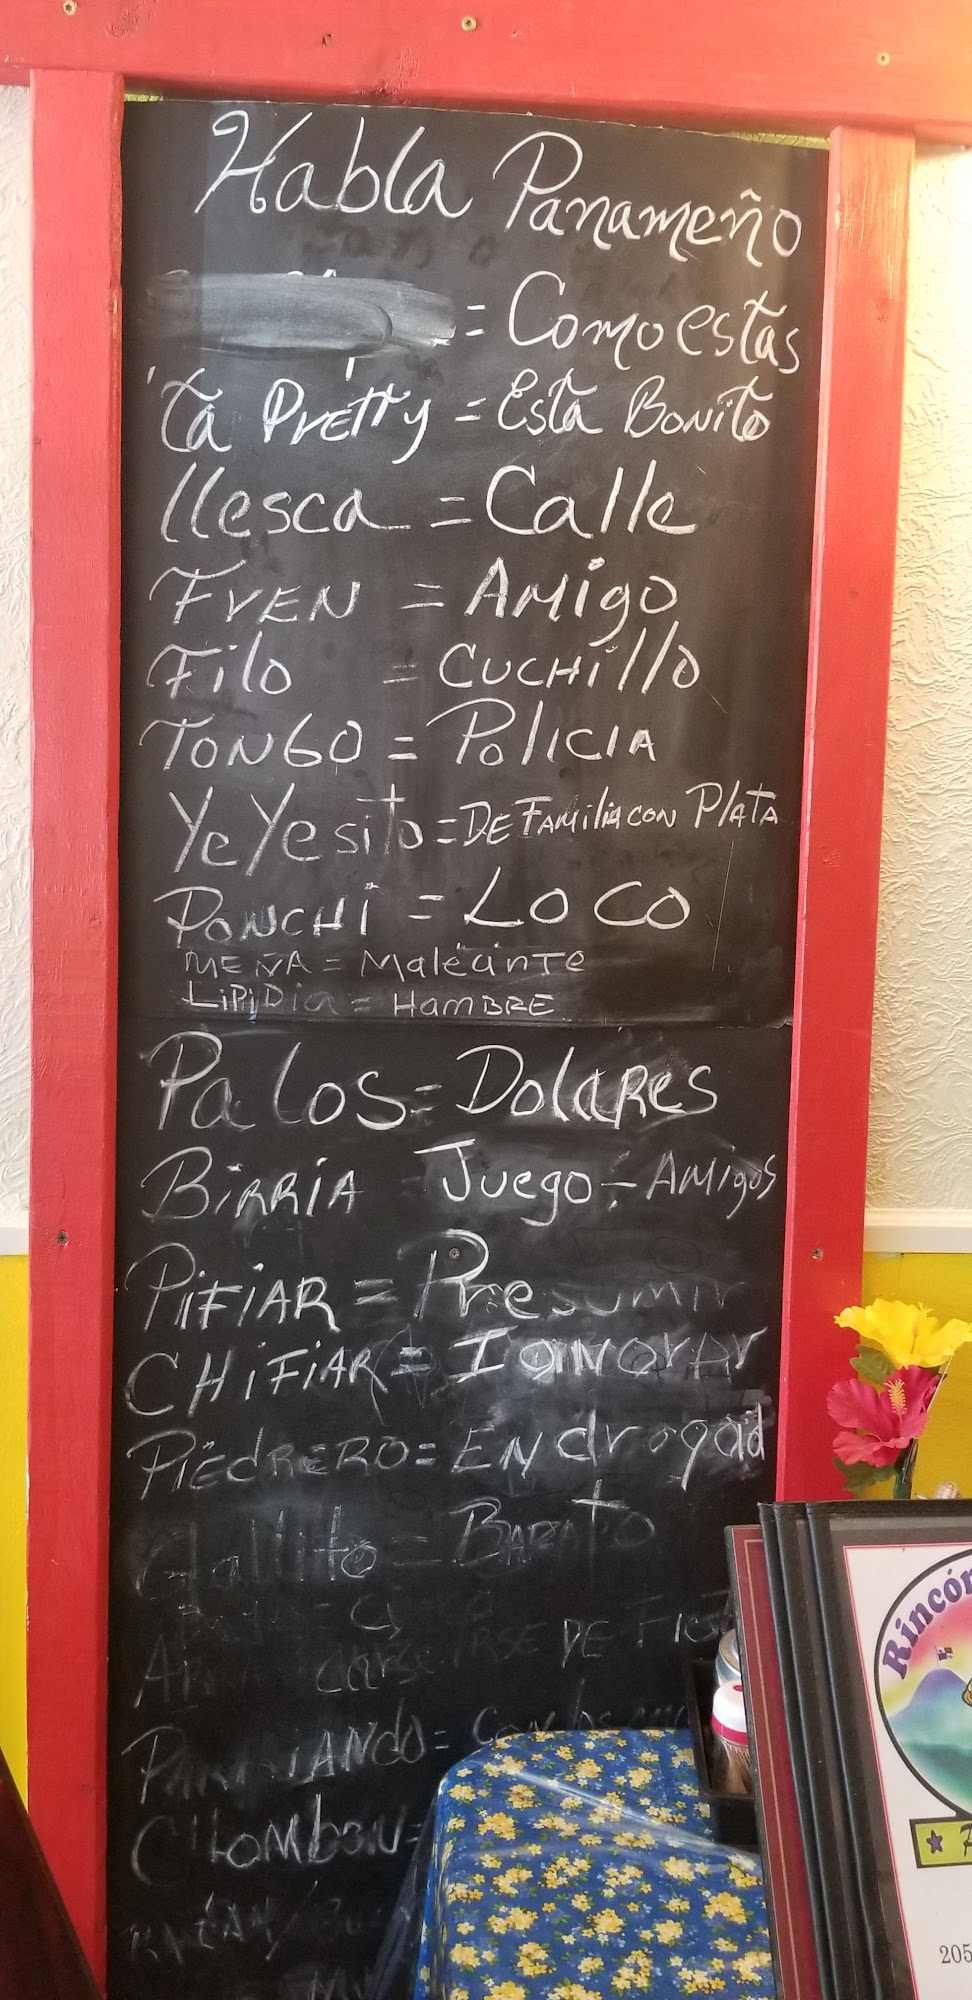 Habla Panameño
= Como estas
'Ta Pretty = Esta Bonito
llesca = Calle
FREN = AMigo
Filo = CUCHillo
TONGO = POLICIA
YeYesito = DE FAMilia con PlATA
PONCHi = LOCO
MEÑA = MaleanTe
LiPiDia = HamBRE
Palos = DolaRes
BiRRiA = Juego - AMigos
PiFiAR = Presumir
CHiFiAR = IGNorAr
PiEdRERO = ENdrogad
Gallito = BARATO
DE
PARKIANDO =
CHOMbON =
Rincón
205